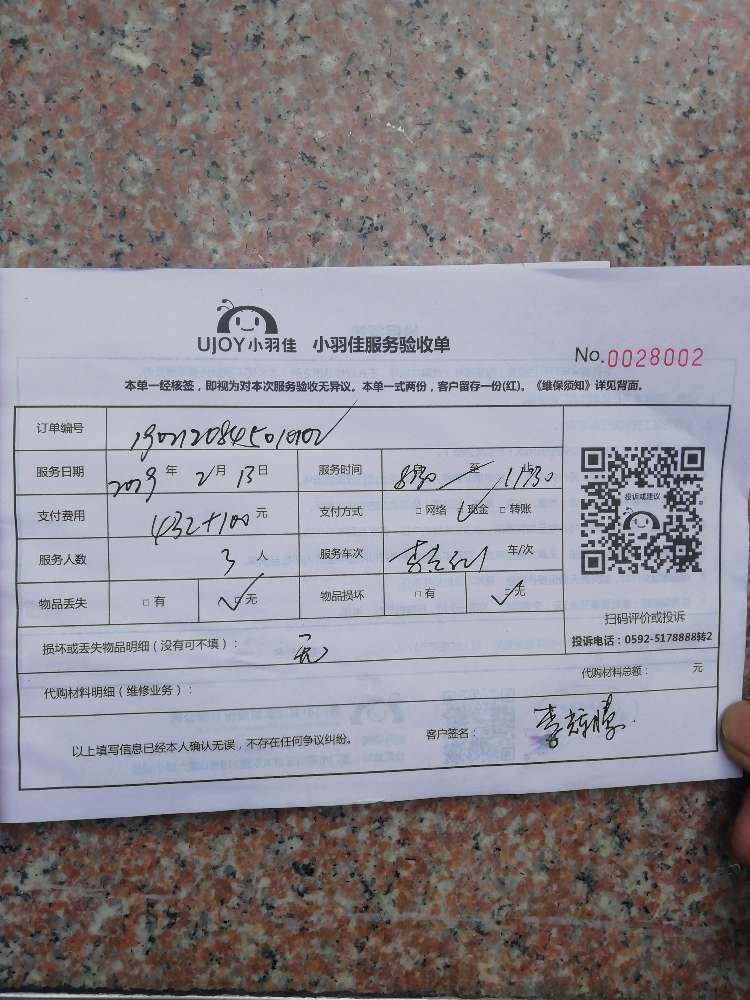 UJOY小羽佳 小羽佳服务验收单
No.0028002
本单一经核签，即视为对本次服务验收无异议。本单一式两份，客户留存一份(红)。《维保须知》详见背面。
订单编号
服务日期 2019 年 2 月 13 日 服务时间 8:30 至 11:30
支付费用 432+100 元 支付方式 □ 网络 ✓现金 □ 转账
服务人数 3 人 服务车次 车/次
物品丢失 □ 有 ✓无 物品损坏 □ 有 ✓无
投诉或建议
扫码评价或投诉
投诉电话：0592-5178888转2
损坏或丢失物品明细（没有可不填）： 无
代购材料明细（维修业务）： 代购材料总额： 元
以上填写信息已经本人确认无误，不存在任何争议纠纷。 客户签名：